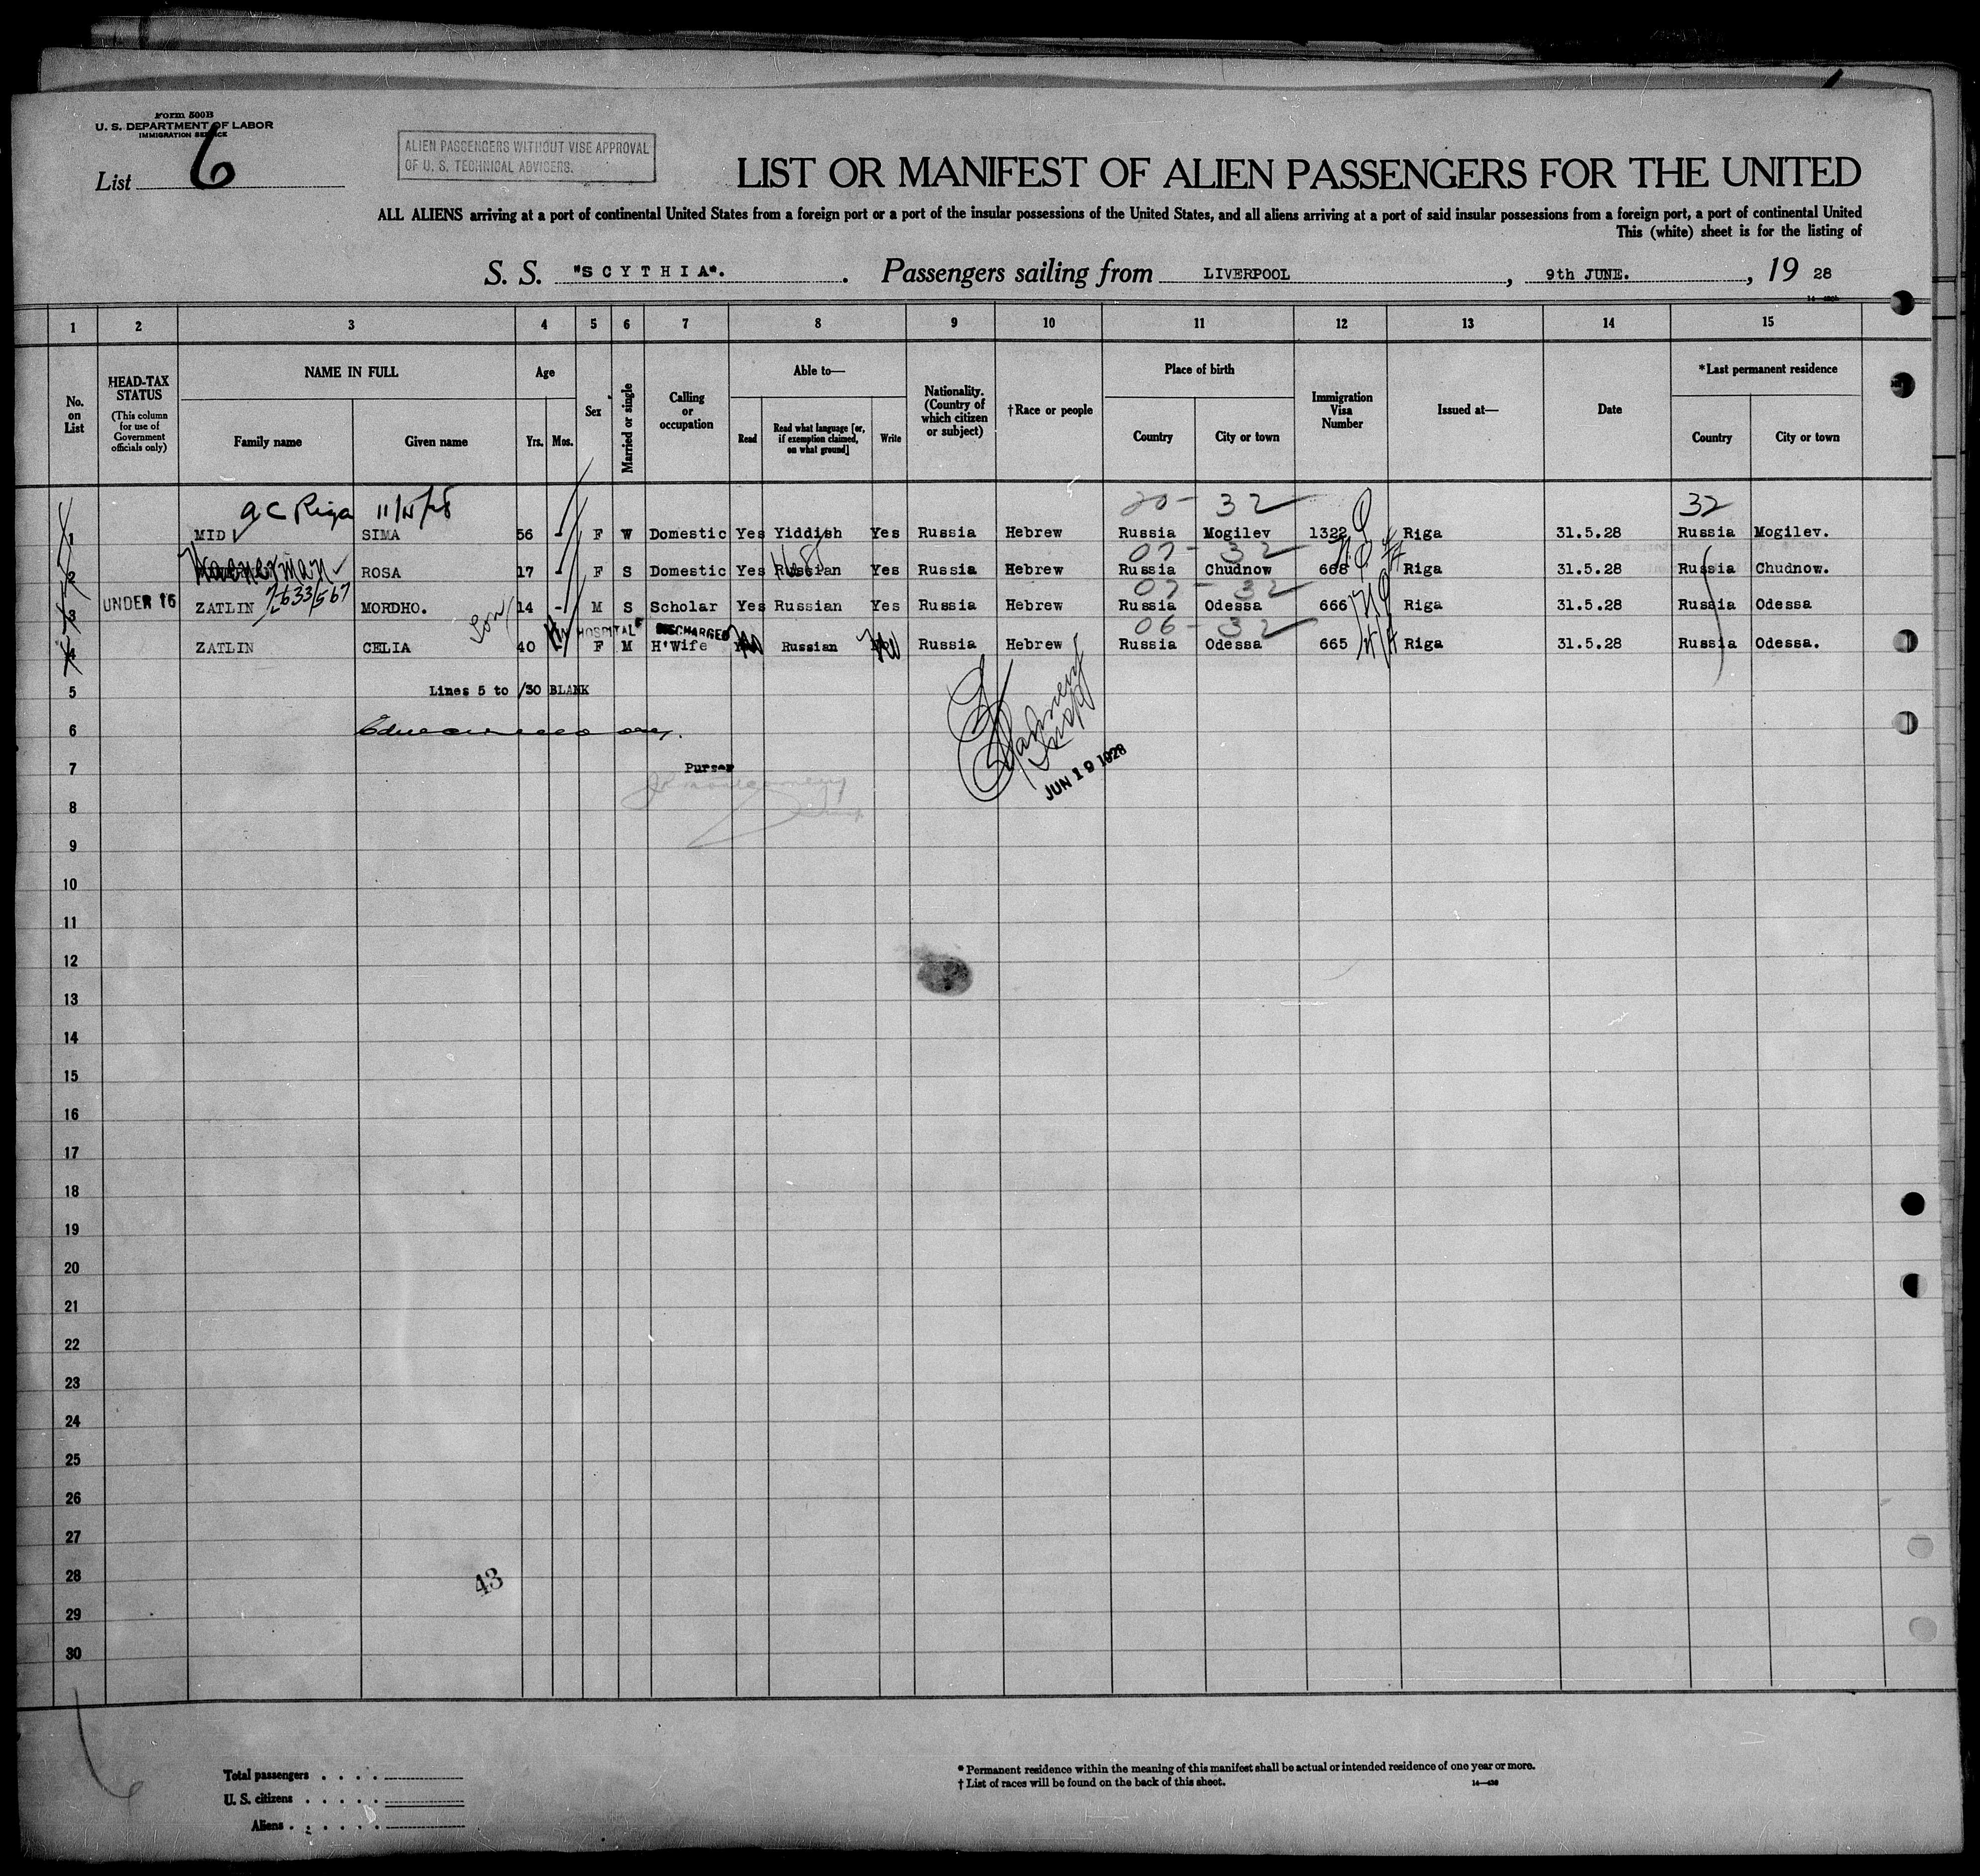 Form 500B
U. S. DEPARTMENT OF LABOR
IMMIGRATION SERVICE
List 6
ALIEN PASSENGERS WITHOUT VISE APPROVAL
OF U. S. TECHNICAL ADVISERS.
LIST OR MANIFEST OF ALIEN PASSENGERS FOR THE UNITED
ALL ALIENS arriving at a port of continental United States from a foreign port or a port of the insular possessions of the United States, and all aliens arriving at a port of said insular possessions from a foreign port, a port of continental United
This (white) sheet is for the listing of
S. S. "SCYTHIA". Passengers sailing from LIVERPOOL, 9th JUNE., 19 28
1 2 3 4 5 6 7 8 9 10 11 12 13 14 15
No. on List
HEAD-TAX STATUS (This column for use of Government officials only)
NAME IN FULL
Family name Given name
Age
Yrs. Mos.
Sex
Married or single
Calling or occupation
Able to—
Read
Read what language [or, if exemption claimed, on what ground]
Write
Nationality. (Country of which citizen or subject)
†Race or people
Place of birth
Country City or town
Immigration Visa Number
Issued at—
Date
*Last permanent residence
Country City or town
Riga 20- 32 32
1 MID SIMA 56 - F W Domestic Yes Yiddish Yes Russia Hebrew Russia Mogilev 1322 Riga 31.5.28 Russia Mogilev.
07- 32
2 ROSA 17 - F S Domestic Yes Russian Yes Russia Hebrew Russia Chudnow 668 Riga 31.5.28 Russia Chudnow.
07- 32
3 UNDER 16 ZATLIN MORDHO. Son 14 - M S Scholar Yes Russian Yes Russia Hebrew Russia Odessa 666 Riga 31.5.28 Russia Odessa
IN HOSPITAL DISCHARGED 06- 32
4 ZATLIN CELIA 40 F M H'Wife No Russian No Russia Hebrew Russia Odessa 665 Riga 31.5.28 Russia Odessa.
5 Lines 5 to /30 BLANK
6
7 Purser
JUN 19 1928
8
9
10
11
12
13
14
15
16
17
18
19
20
21
22
23
24
25
26
27
28 43
29
30
Total passengers . . . .
U. S. citizens . . . . .
Aliens . . . . . .
* Permanent residence within the meaning of this manifest shall be actual or intended residence of one year or more.
† List of races will be found on the back of this sheet.